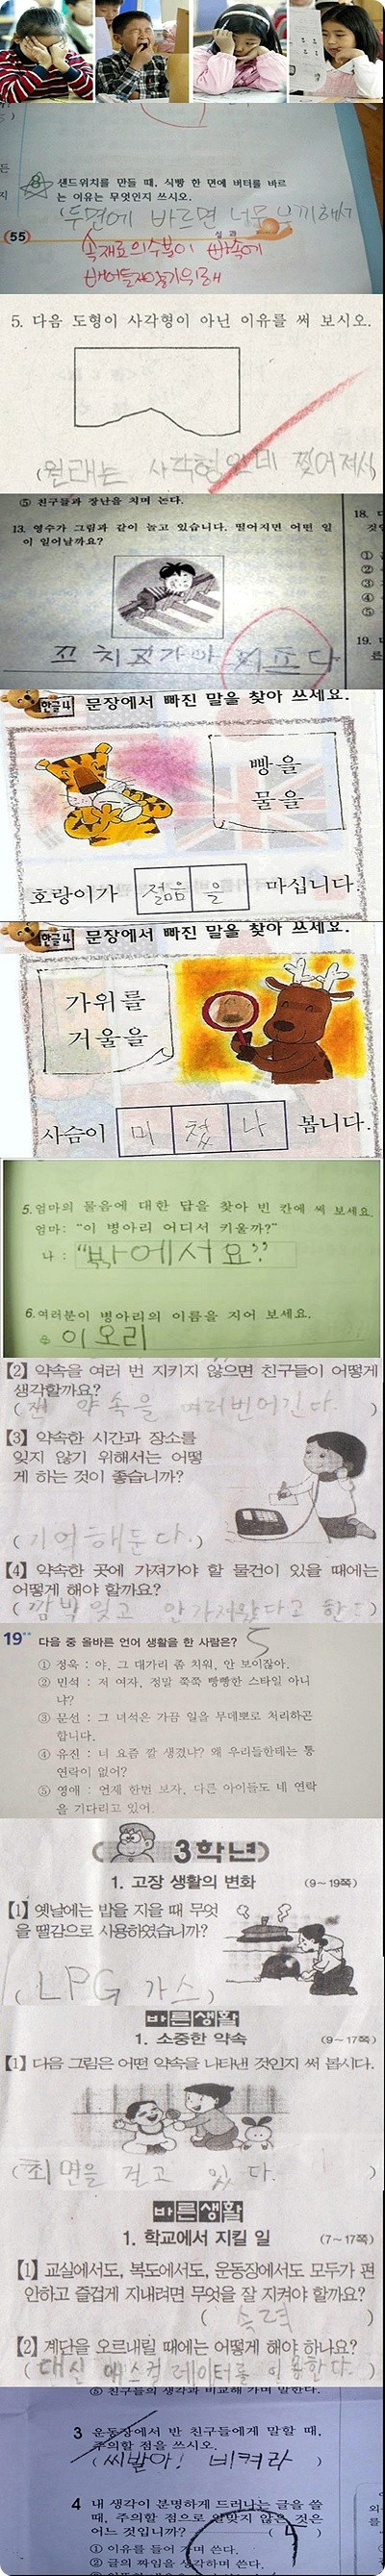 8 샌드위치를 만들 때, 식빵 한 면에 버터를 바르
는 이유는 무엇인지 쓰시오.
(두면에 바르면 너무 느끼해서
55
실과
속재료의수분이 빵속에
배어들지않게하기위해
5. 다음 도형이 사각형이 아닌 이유를 써 보시오.
(원래는 사각형인데 찢어져서)
⑤ 친구들과 장난을 치며 논다.
13. 영수가 그림과 같이 놀고 있습니다. 떨어지면 어떤 일
이 일어날까요?
18.
①
②
③
④
⑤
19.
한글나 문장에서 빠진 말을 찾아 쓰세요.
빵을
물을
호랑이가 젊음을 마십니다.
한글나 문장에서 빠진 말을 찾아 쓰세요.
가위를
거울을
사슴이 미쳤나 봅니다.
5. 엄마의 물음에 대한 답을 찾아 빈 칸에 써 보세요.
엄마: "이 병아리 어디서 키울까?"
나 : "밖에서요?"
6. 여러분이 병아리의 이름을 지어 보세요.
이오리
【2】 약속을 여러 번 지키지 않으면 친구들이 어떻게
생각할까요?
(잰 약속을 여러번어긴다.)
【3】 약속한 시간과 장소를
잊지 않기 위해서는 어떻
게 하는 것이 좋습니까?
(기억해둔다.)
【4】 약속한 곳에 가져가야 할 물건이 있을 때에는
어떻게 해야 할까요?
(깜박잊고 안가져왔다고 한다)
19 다음 중 올바른 언어 생활을 한 사람은? 5
① 정욱 : 야, 그 대가리 좀 치워, 안 보이잖아.
② 민석 : 저 여자, 정말 쭉쭉 빵빵한 스타일 아니
냐?
③ 문선 : 그 녀석은 가끔 일을 무데뽀로 처리하곤
합니다.
④ 유진 : 너 요즘 깔 생겼냐? 왜 우리들한테는 통
연락이 없어?
⑤ 영애 : 언제 한번 보자, 다른 아이들도 네 연락
을 기다리고 있어.
3학년
1. 고장 생활의 변화 (9~19쪽)
【1】 옛날에는 밥을 지을 때 무엇
을 땔감으로 사용하였습니까?
(LPG 가스)
바른생활
1. 소중한 약속 (9~17쪽)
【1】 다음 그림은 어떤 약속을 나타낸 것인지 써 봅시다.
(최면을 걸고 있다.)
바른생활
1. 학교에서 지킬 일 (7~17쪽)
【1】 교실에서도, 복도에서도, 운동장에서도 모두가 편
안하고 즐겁게 지내려면 무엇을 잘 지켜야 할까요?
(속력)
【2】 계단을 오르내릴 때에는 어떻게 해야 하나요?
(대신 에스컬레이터를 이용한다.)
⑤ 친구들의 생각과 비교해 가며 말한다.
3 운동장에서 반 친구들에게 말할 때,
주의할 점을 쓰시오.
(씨발아! 비켜라)
4 내 생각이 분명하게 드러나는 글을 쓸
때, 주의할 점으로 알맞지 않은 것은
어느 것입니까? (4)
① 이유를 들어 가며 쓴다.
② 글의 짜임을 생각하며 쓴다.